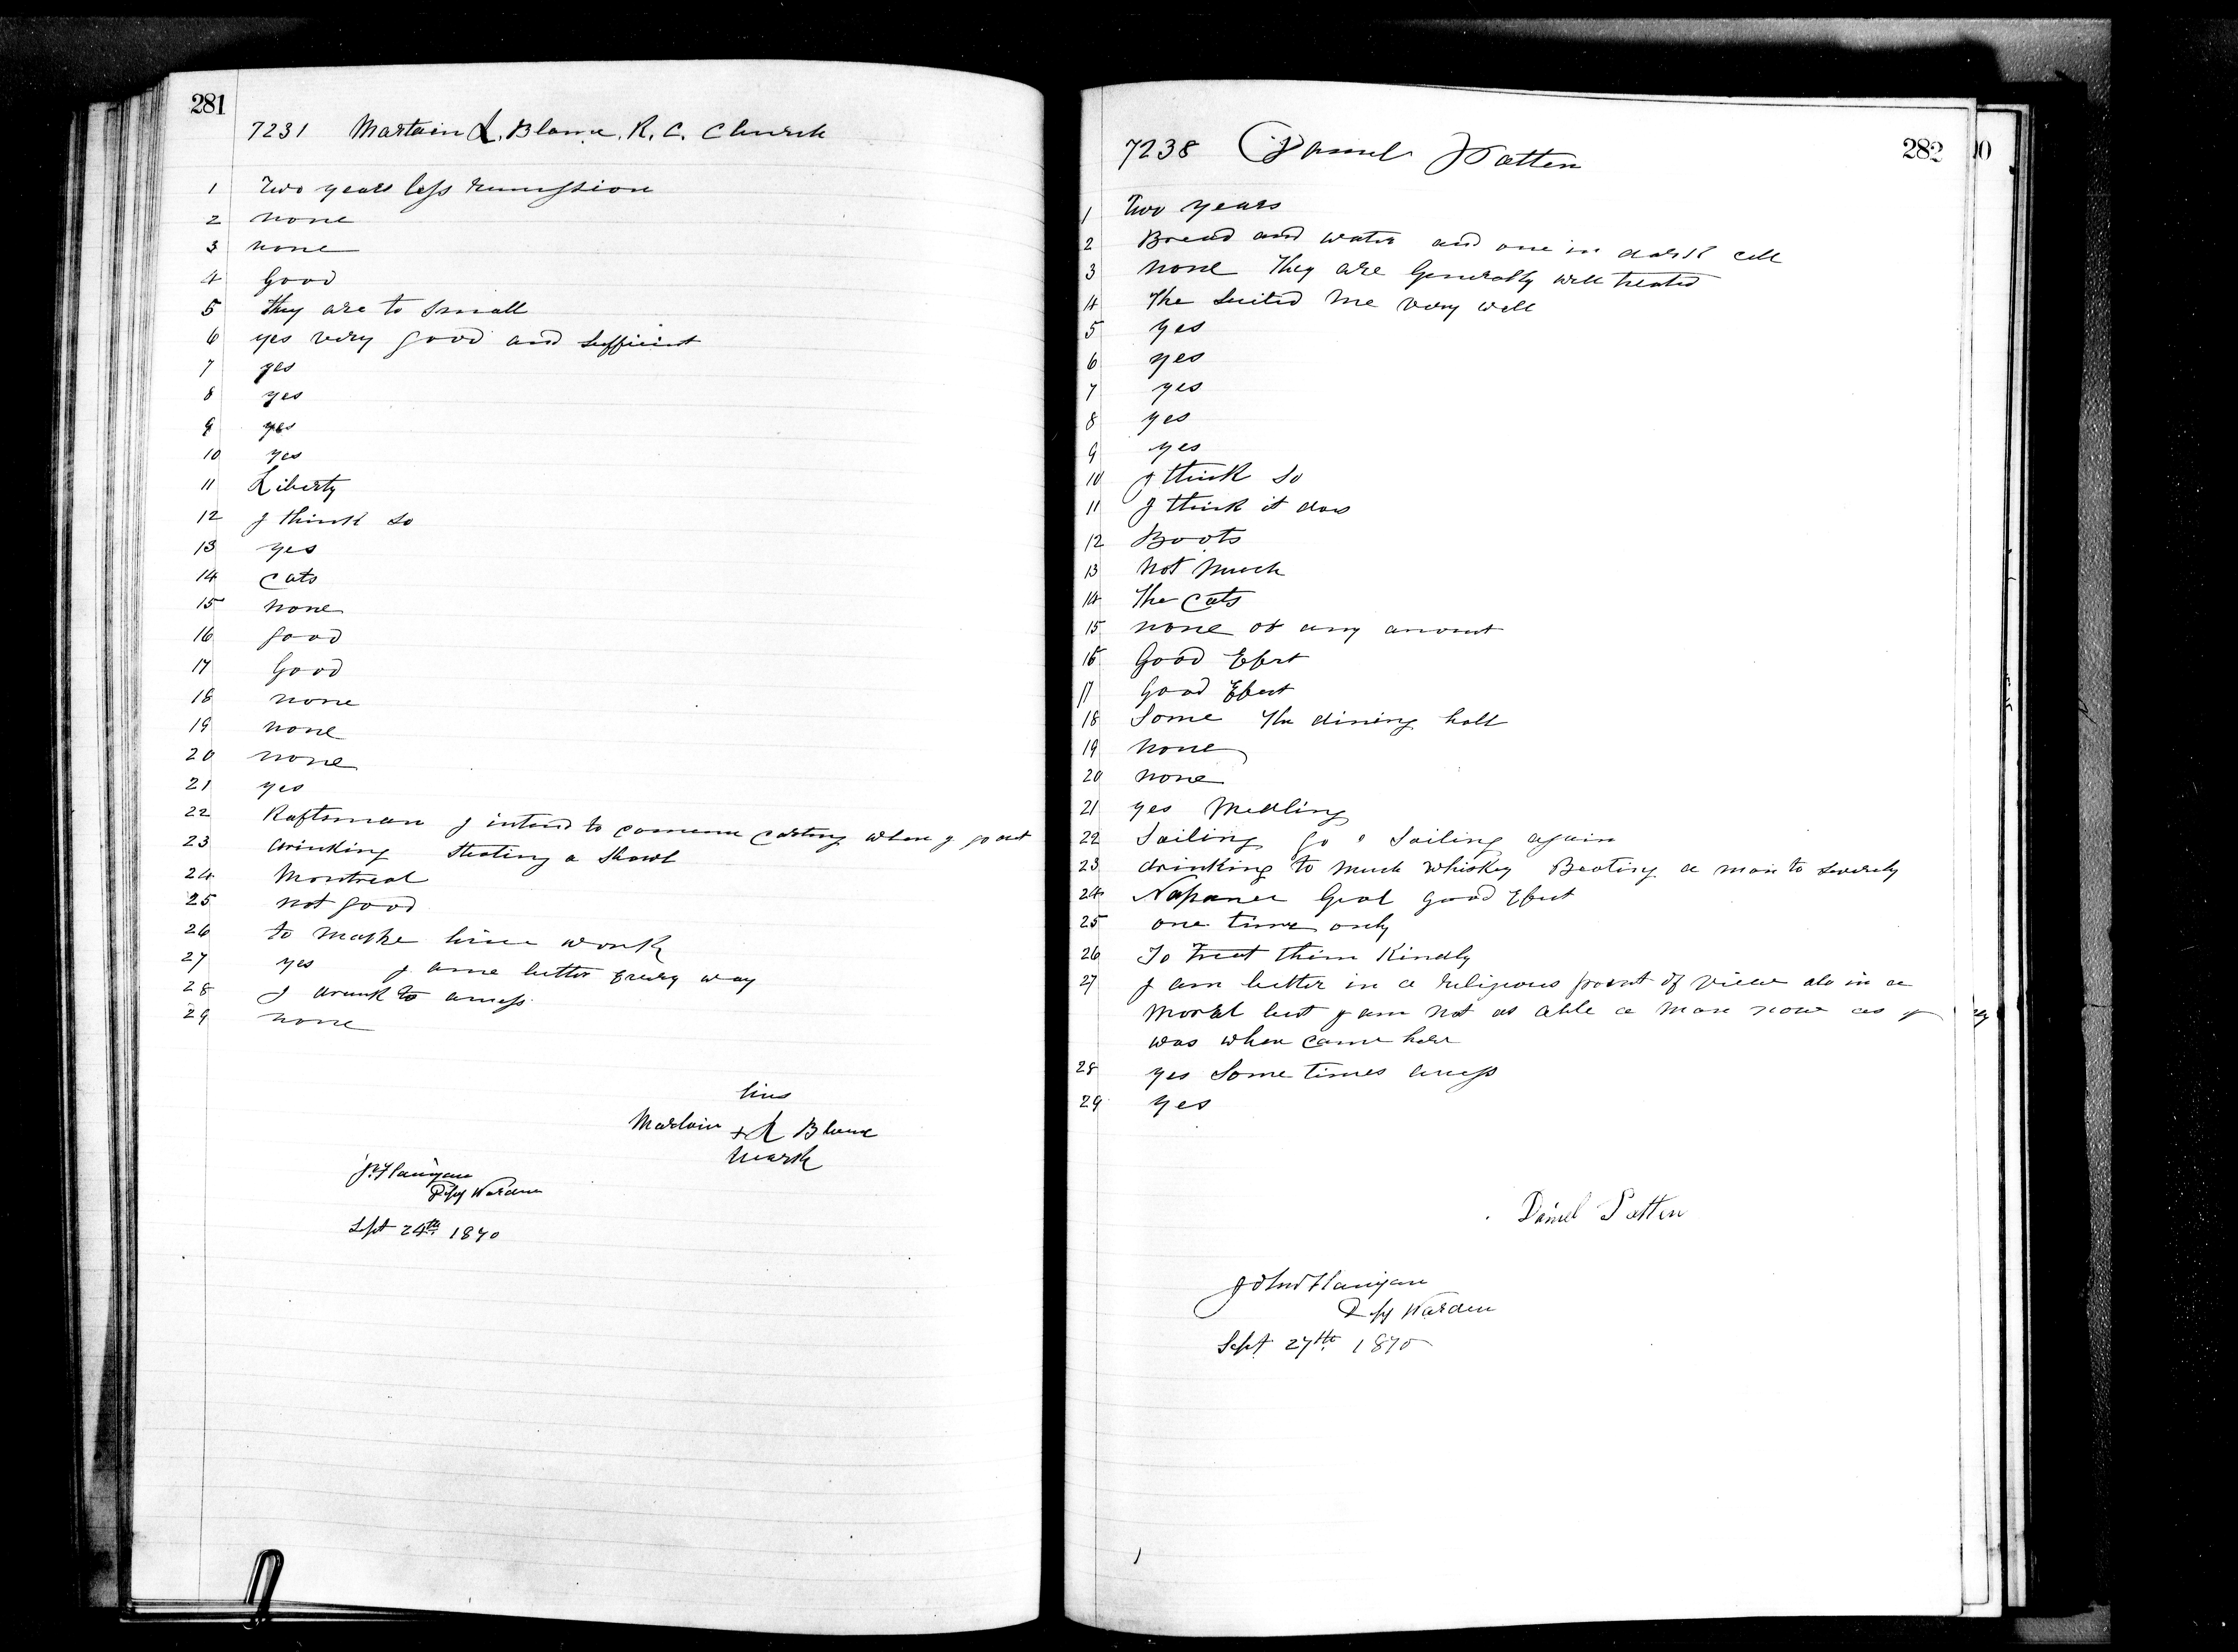 281
7231 Martain L. Blanc. R. C. Church
1 Two years less remission
2 none
3 none
4 Good
5 they are to small
6 yes very good and sufficient
7 yes
8 yes
9 yes
10 yes
11 Liberty
12 I think so
13 yes
14 cats
15 none
16 good
17 Good
18 none
19 none
20 none
21 yes
22 Raftsman I intend to commence carting when I go out
23 drinking Steeling a Shawl
24 Montreal
25 not good
26 to make him work
27 yes I ame better Every way
28 I drank to amess
29 none
his
Martain + L Blanc
mark
J. Flanigan
Dpy Warden
Sept 24th 1870
282
7238 Daniel Patten
1 Two years
2 Bread and water and one in dark cell
3 none They are Generally well treated
4 The Suited me very well
5 yes
6 yes
7 yes
8 yes
9 yes
10 I think so
11 I think it dows
12 Boots
13 Not Much
14 The Cats
15 none of any amount
16 Good Efect
17 Good Efect
18 Some The dining hall
19 none
20 none
21 yes Medling
22 Sailing Go a Sailing again
23 drinking to much whiskey Beating a man to severely
24 Napanee Goal Good Efect
25 one time only
26 To Treat them Kindly
27 I am better in a religious point of view als in a
Moral but I am not as able a man now as I
was when came here
28 yes Some times amess
29 yes
Daniel Patten
John Flanigan
Dpy Warden
Sept 27th 1870